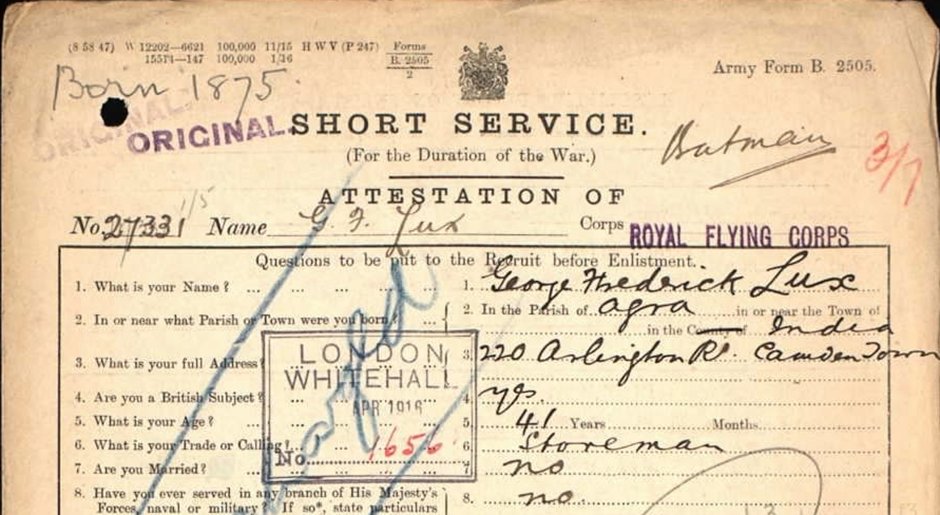 (8 58 47) W 12202—6621 100,000 11/15 H W V (P 247) Forms
B. 2505
15574—147 100,000 1/16 2
Army Form B. 2505.
Born 1875
ORIGINAL.
ORIGINAL.
SHORT SERVICE.
(For the Duration of the War.)
Batman
3/7
ATTESTATION OF
1/5
No. 27331 Name G. F. Lux Corps ROYAL FLYING CORPS
Questions to be put to the Recruit before Enlistment.
1. What is your Name? ... ... ... ... 1. George Frederick Lux
2. In or near what Parish or Town were you born? ... 2. In the Parish of Agra in or near the Town of
in the County of India
3. What is your full Address? 3. 220 Arlington Rd. Camden Town
4. Are you a British Subject? 4. yes.
5. What is your Age? 5. 41 Years Months.
6. What is your Trade or Calling? 6. Storeman
7. Are you Married? 7. no
8. Have you ever served in any branch of His Majesty's 8. no.
Forces, naval or military? If so*, state particulars
LONDON
WHITEHALL
APR 1916
No. 1656